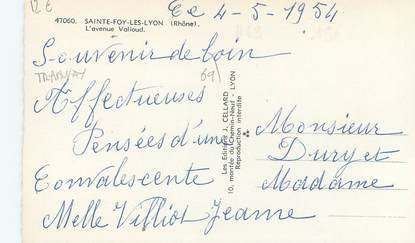 12 €
Ce 4-5-1954
47060. SAINTE-FOY-LES-LYON (Rhône).
L'avenue Valioud.
Souvenir de loin
TRAMWAY 69
Affectueuses
Pensées d'une
Convalescente
Melle Villiot Jeanne
Les Editions J. CELLARD
10, montée du Chemin-Neuf - LYON
Reproduction interdite
Monsieur
Duryet
Madame